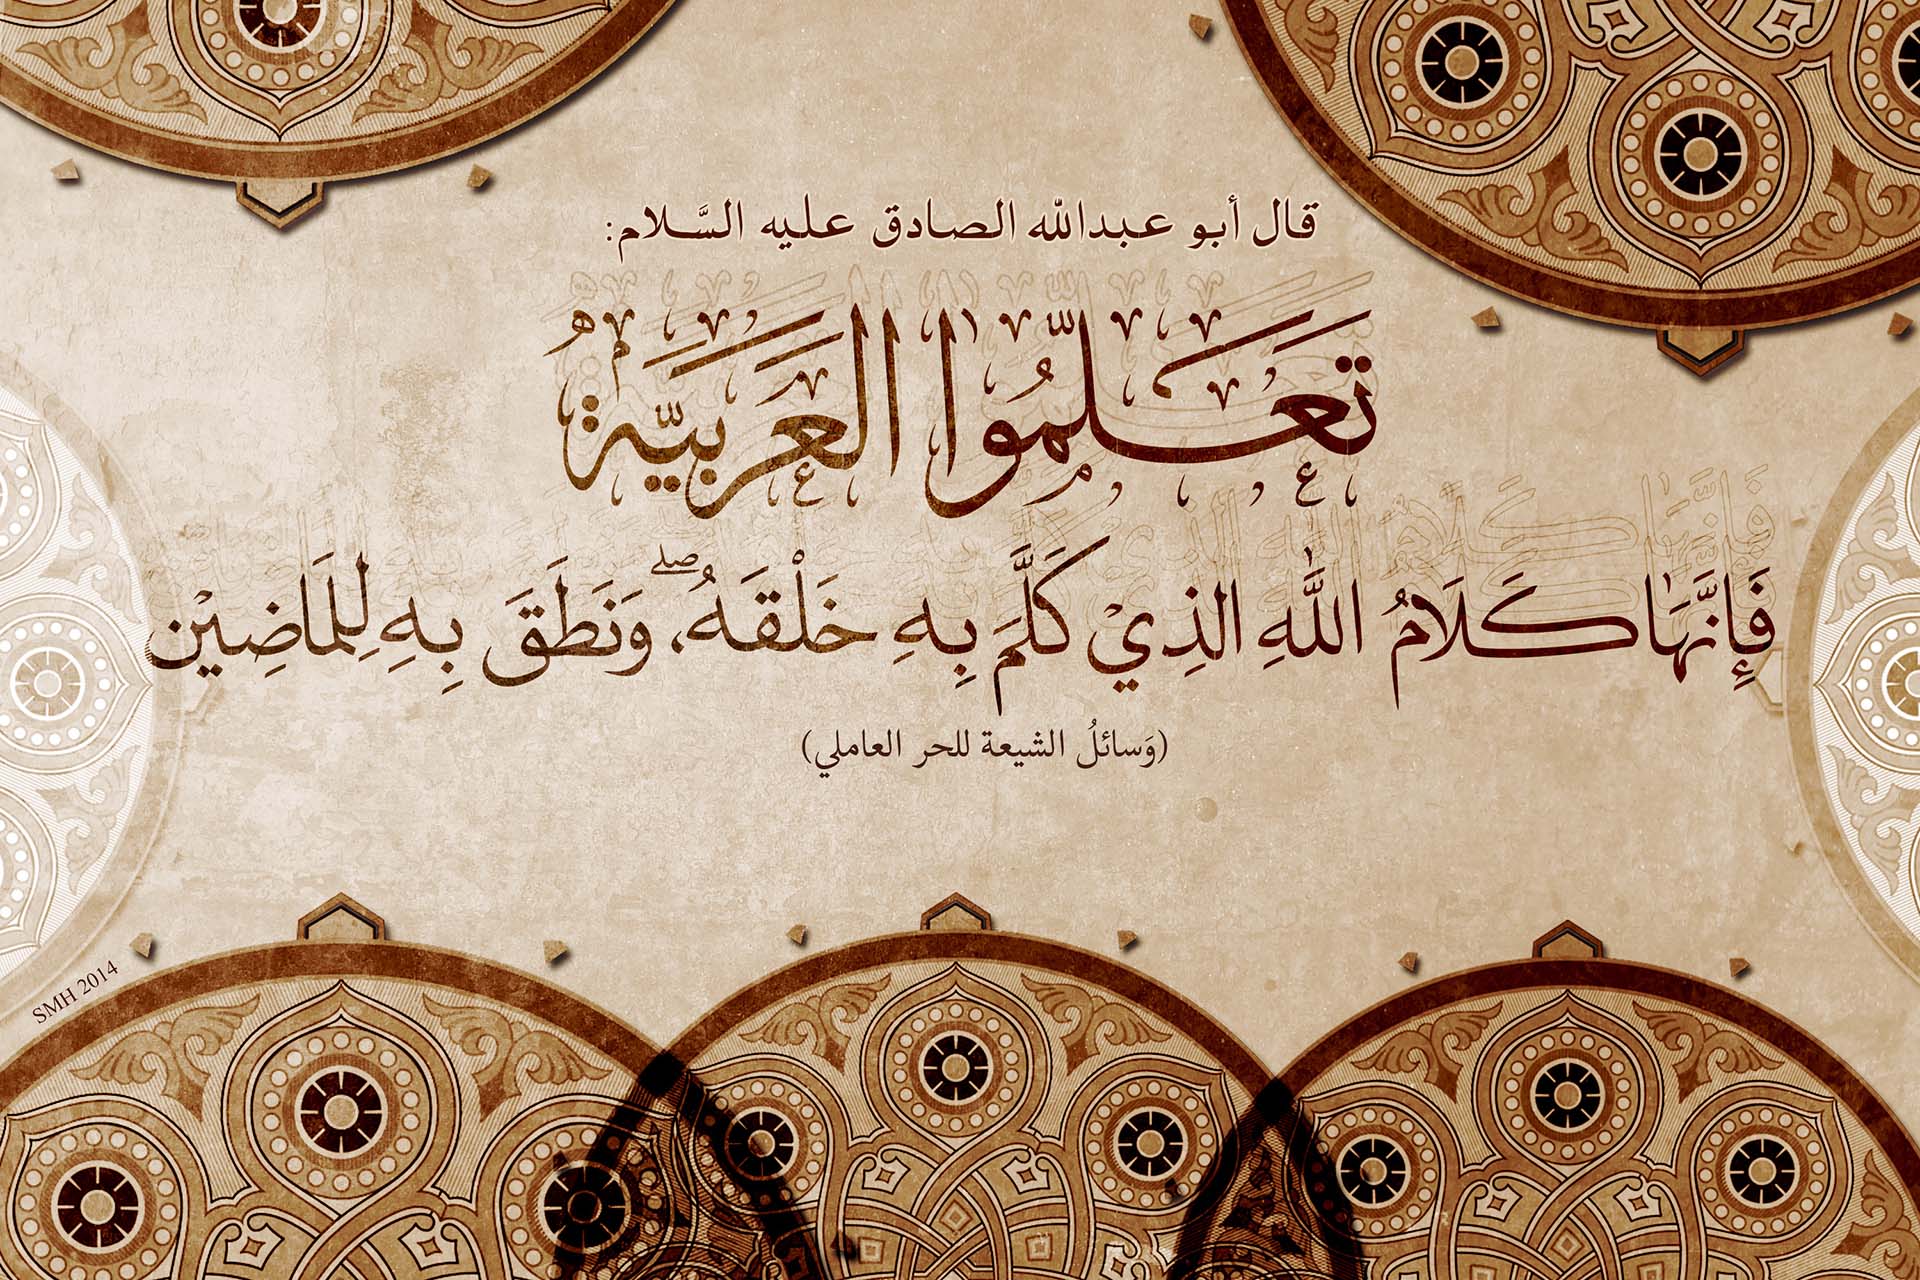 قال أبو عبدالله الصادق عليه السَّلام:
تَعَلَّمُوا العَرَبِيَّةَ
فَإِنَّهَا كَلَامُ اللَّهِ الذِيْ كَلَّمَ بِهِ خَلْقَهُ، وَنَطَقَ بِهِ لِلمَاضِيْن
(وَسائلُ الشيعة للحر العاملي)
SMH 2014